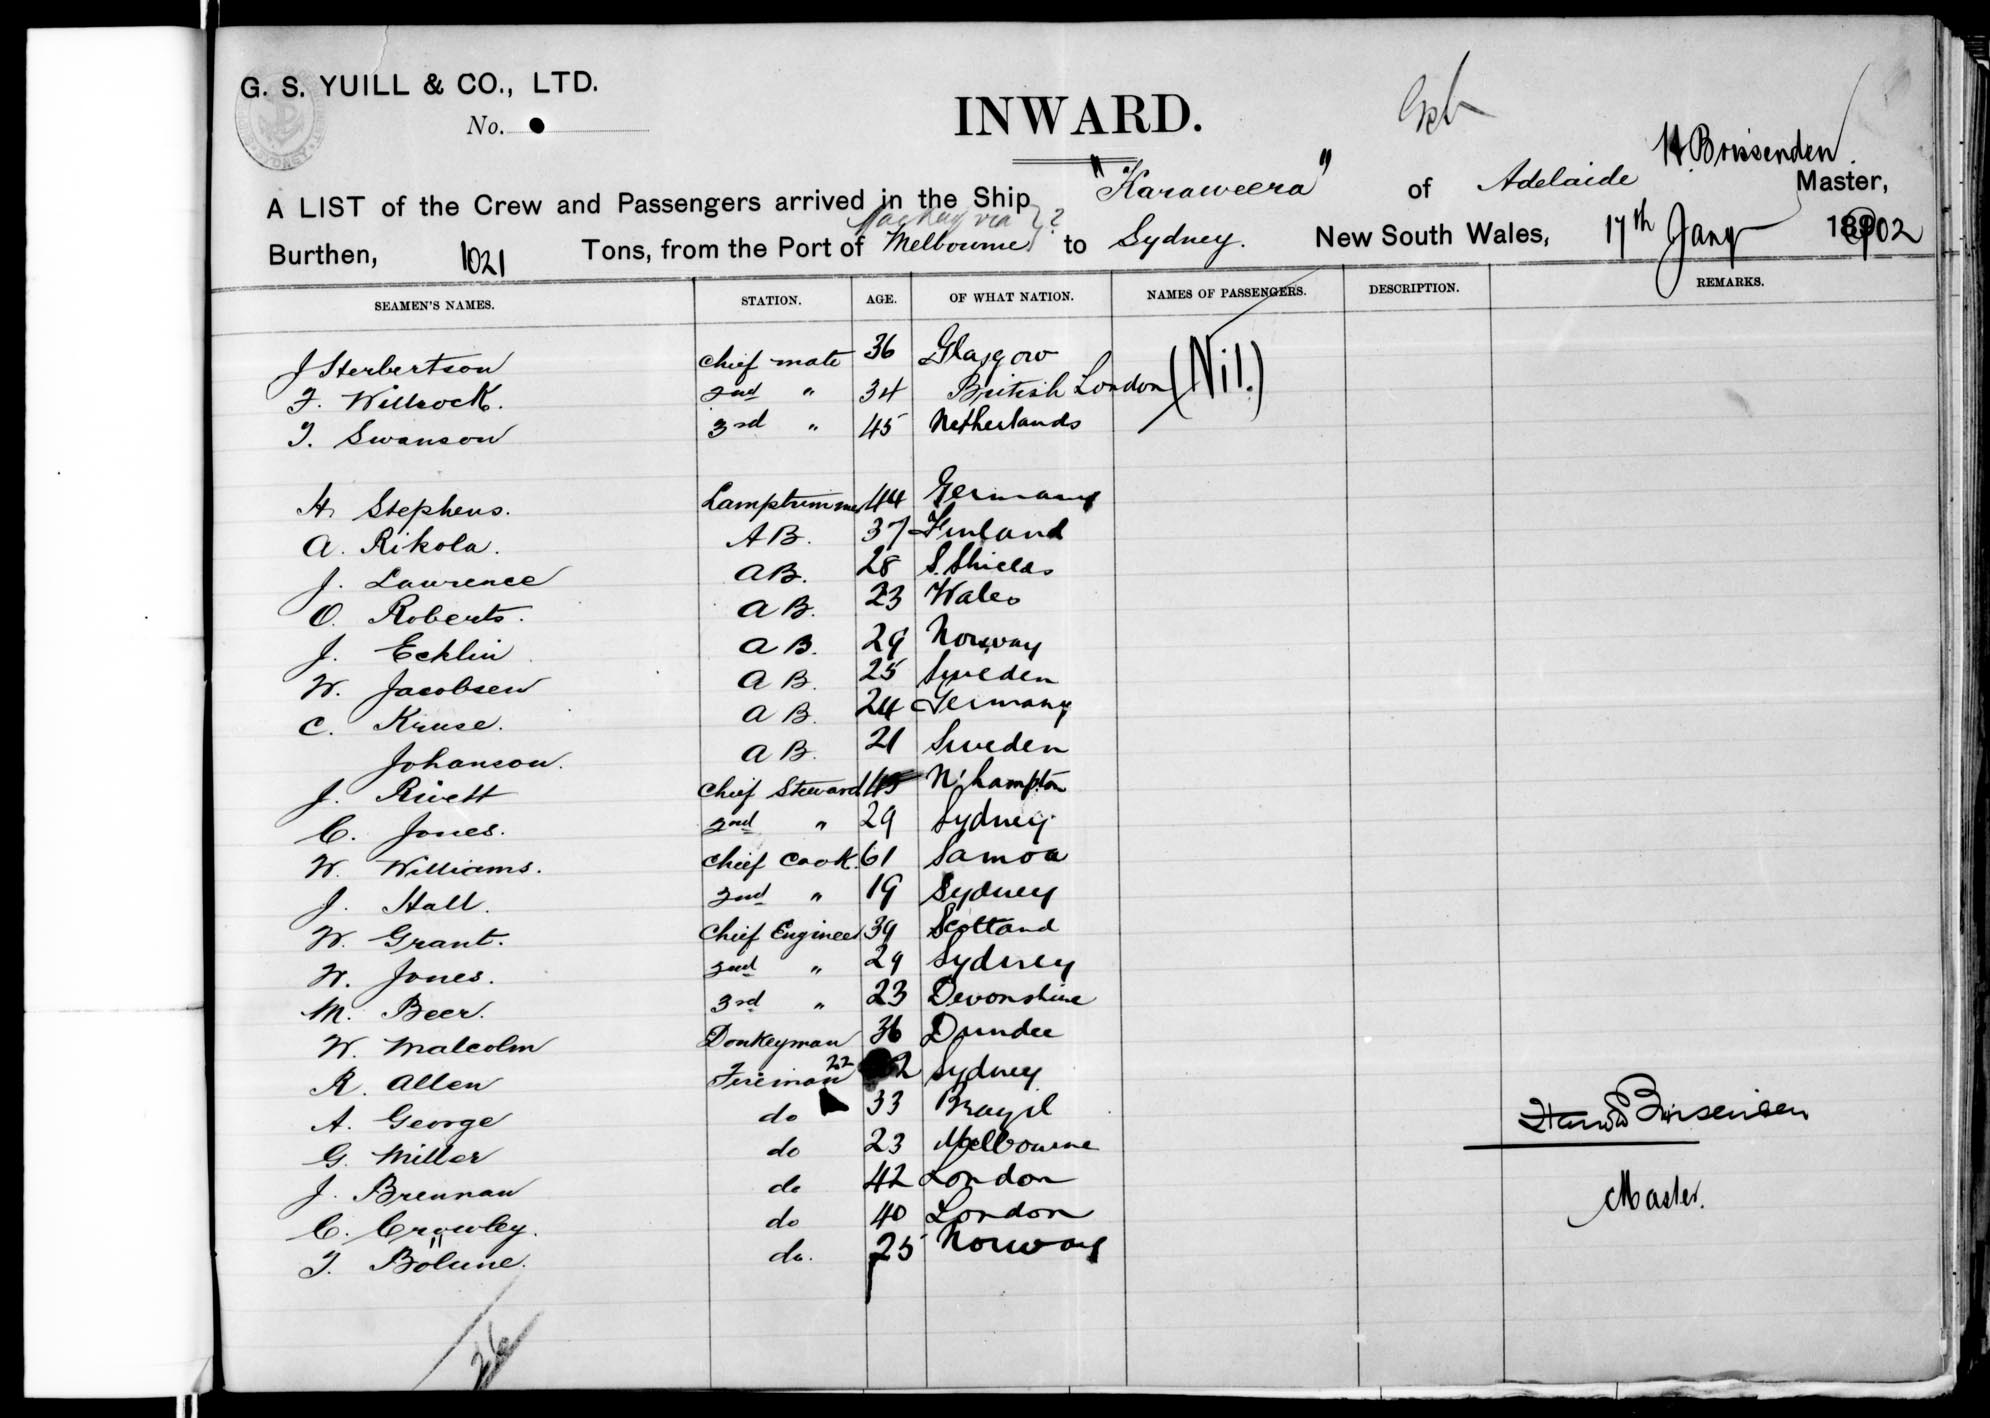 G. S. YUILL & CO., LTD.
No.
INWARD.
H Brissenden.
A LIST of the Crew and Passengers arrived in the Ship "Karaweera" of Adelaide Master,
Mackay via ?
Burthen, 1021 Tons, from the Port of Melbourne to Sydney. New South Wales, 17th Jany 1902
SEAMEN'S NAMES. STATION. AGE. OF WHAT NATION. NAMES OF PASSENGERS. DESCRIPTION. REMARKS.
J Herbertson chief mate 36 Glasgow (Nil.)
F. Willcock. 2nd " 34 British London
T. Swanson 3rd " 45 Netherlands
H. Stephens. Lamptrimmer 44 Germany
A. Rikola. AB. 37 Finland
J. Lawrence AB. 28 S. Shields
O. Roberts. AB. 23 Wales
J. Ecklin AB. 29 Norway
W. Jacobsen AB. 25 Sweden
C. Kruse. AB. 24 Germany
Johanson. AB. 21 Sweden
J. Rivett Chief Steward 45 N'hampton
C. Jones. 2nd " 29 Sydney
W. Williams. Chief Cook. 61 Samoa
J. Hall. 2nd " 19 Sydney
W. Grant. Chief Engineer 39 Scotland
W. Jones. 2nd " 29 Sydney
M. Beer. 3rd " 23 Devonshire
W. Malcolm Donkeyman 36 Dundee
R. Allen Fireman 22 2 Sydney
A. George do 33 Brazil
G. Miller do 23 Melbourne
J. Brennan do 42 London
C. Crowley. do 40 London
T. Bölune. do. 25 Norway
Harold Brissenden
Master.
26